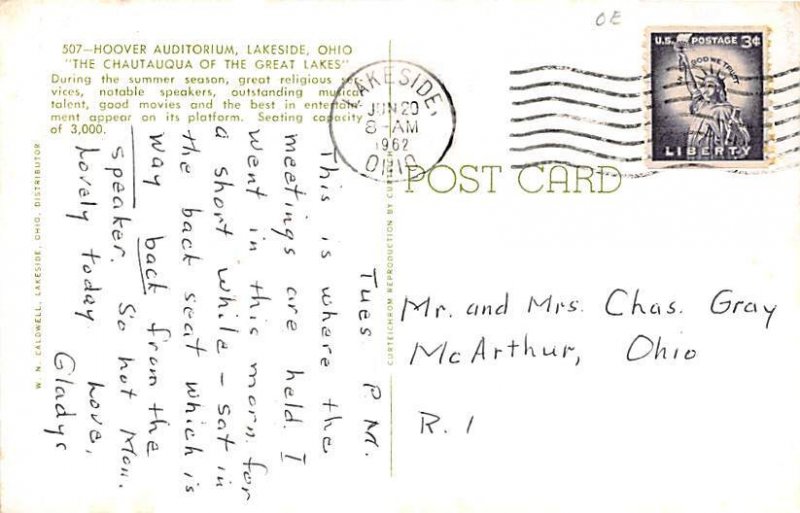 507—HOOVER AUDITORIUM, LAKESIDE, OHIO
"THE CHAUTAUQUA OF THE GREAT LAKES"
During the summer season, great religious ser-
vices, notable speakers, outstanding musical
talent, good movies and the best in entertain-
ment appear on its platform. Seating capacity
of 3,000.
W. N. CALDWELL, LAKESIDE, OHIO, DISTRIBUTOR
Tues. P.M.
This is where the
meetings are held. I
went in this morn. for
a short while – sat in
the back seat which is
way back from the
speaker. So hot Mon.
Lovely today
Love,
Gladys
LAKESIDE,
JUN 20
8-AM
1962
OHIO
CURTEICHROM REPRODUCTION BY CURTEICH
OE
U.S. POSTAGE 3¢
IN GOD WE TRUST
LIBERTY
POST CARD
Mr. and Mrs. Chas. Gray
McArthur, Ohio
R. 1